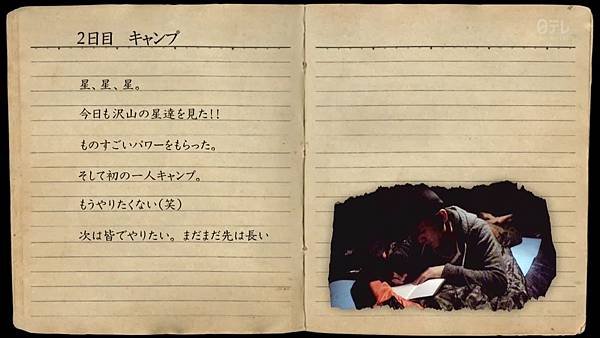 2日目 キャンプ
日テレ
星、星、星。
今日も沢山の星達を見た!!
ものすごいパワーをもらった。
そして初の一人キャンプ。
もうやりたくない(笑)
次は皆でやりたい。まだまだ先は長い